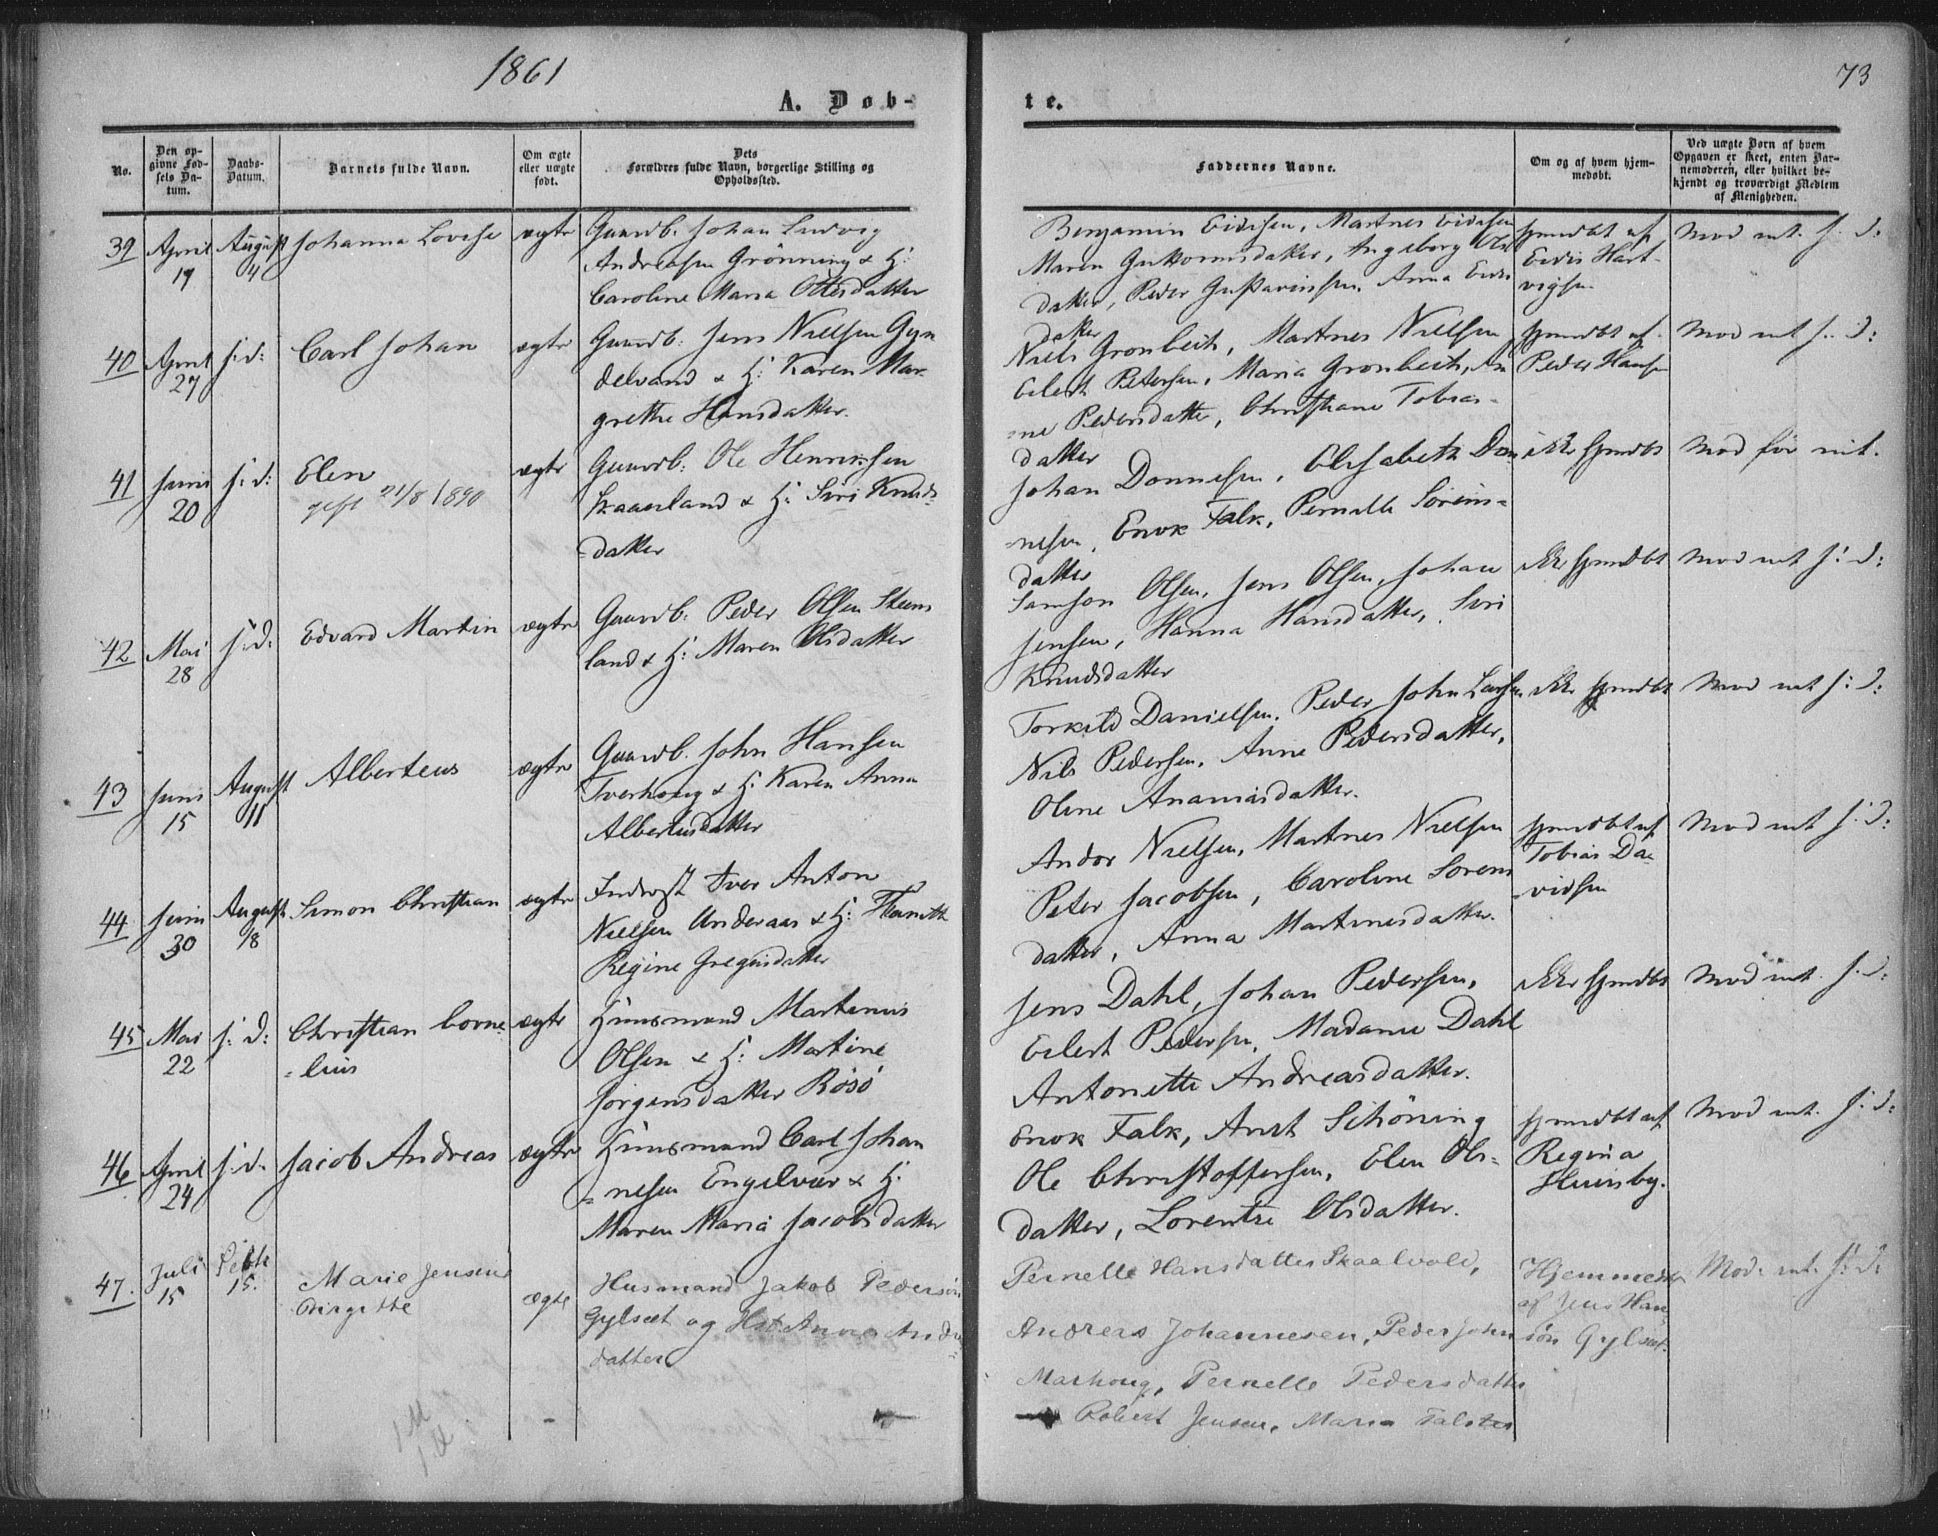 1861
73
A. Døb-
te.
No.
Den op-
givne Fød-
sels Da-
tum.
Daabs-
Datum.
Barnets fulde Navn.
Om ægte
eller uægte
født.
Dets
Forældres fulde Navn, borgerlige Stilling og
Opholdssted.
Faddernes Navne.
Om og af hvem hjem-
medøbt.
Ved uægte Børn af hvem
Opgaven er skeet, enten Bar-
nemoderen, eller hvilket be-
kjendt og troværdigt Medlem
af Menigheden.
39 April 19 August 4 Johanna Lovise ægte
Gaardb. Johan Ludvig
Andreasen Grönning & H:
Caroline Maria Ottesdatter
Benjamin Eidisen, Martnes Eidisen
Maren Guttormsdatter, Ingeborg Ols
datter, Peder Gustavinsen, Anna Eidis
datter
hjemdbt af
Eidis Hart-
vigsen
Mod nt. s. d:
40 April 27 s: d: Carl Johan ægte
Gaardb: Jens Nielsen Gyn
delvand & H: Karen Mar
grethe Hansdatter.
Niels Gronbech, Martnes Nielsen
Eilert Petersen, Maria Gronbech, An
ne Pedersdatter, Christiane Tobias-
datter
hjemdbt af.
Peder Hansen
Mod nt s. d:
41 Juni 20 s: d: Elen
gift 21/8 1890
ægte
Gaardb: Ole Henriksen
Skaanland & H: Siri Knuds-
datter
Johan Donnesen, Elisabeth Don
nesen, Enok Falk, Pernille Sörens-
datter
ikke hjemdbt
Mod før nit.
42 Mai 28 s: d: Edvard Martin ægte
Gaardb. Peder Olsen Steens
land & H: Maren Olsdatter
Samson Olsen, Jens Olsen, Johan
Jensen, Hanna Hansdatter, Siri
Knudsdatter
ikke hjemdbt
Mod nt s: d:
43 Juni 15 August 11 Alberteus ægte
Gaardb. John Hansen
Tverhoug & H: Karen Anna
Albertusdatter
Torkild Danielsen, Peder John Larsen
Nils Pedersen, Anne Pedersdatter,
Oline Ananiasdatter.
ikke hjemdbt
Mod nt s: d:
44 Juni 30 August 18 Simon Christian ægte
Inderst Iver Anton
Nielsen Anderaas & H:
Regine Gregersdatter
Andor Nielsen, Martnes Nielsen
Peter Jacobsen, Caroline Sorens
datter, Anna Martinesdatter.
hjemdbt af
Tobias Da-
vidsen
Mod nt s: d:
45 Mai 22 s: d: Christian Corne-
lius
ægte
Huusmand Martinus
Olsen & H: Martine
Jörgensdatter Rösö
Jens Dahl, Johan Pedersen,
Eilert Pedersen, Madame Dahl
Antonette Andreasdatter.
ikke hjemdbt
Mod nt. s: d:
46 April 24 s: d. Jacob Andreas ægte
Huusmand Carl Johan
nesen Engelvær & H:
Maren Maria Jacobsdatter
Enok Falk, Arnt Schöning
Ole Christoffersen, Elen Ols-
datter, Lorentse Olsdatter.
hjemdbt af
Regina
Huusby.
Mod nt. s: d:
47. Juli 15 Septe 15. Marie Jensine
Birgitte
ægte
Husmand Jakob Pedersön
Gylset og Hst Anne Andr-
datter
Pernelle Hansdatter Skaalvold,
Andreas Johannesen, Peder John
Marhoug, Pernelle Pedersdatter
Robert Jensen, Maria Falster
Hjemmedbt
af Jens Han
sön Gylset.
Mod. nt. s: d:
1 M
1 Q